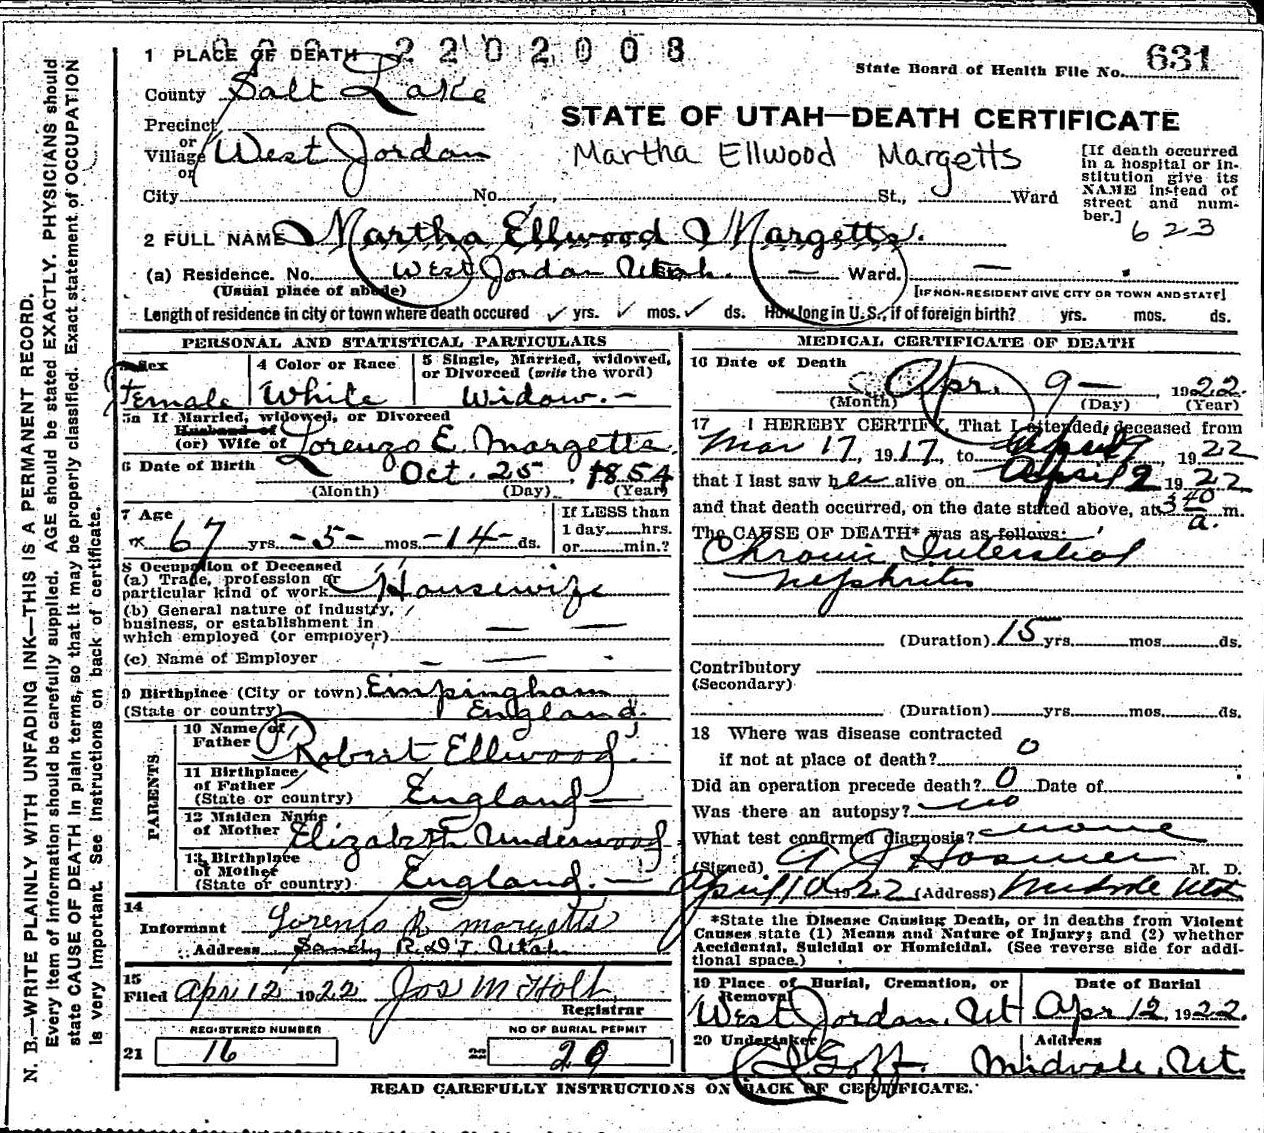 1 PLACE OF DEATH 2202008
State Board of Health File No. 631
County Salt Lake
Precinct
or
Village West Jordan
or
City No. St., Ward
STATE OF UTAH—DEATH CERTIFICATE
Martha Ellwood Margetts
[If death occurred
in a hospital or in-
stitution give its
NAME instead of
street and num-
ber.]
623
2 FULL NAME Martha Ellwood Margetts.
(a) Residence. No. West Jordan Utah. — Ward. —
(Usual place of abode)
[IF NON-RESIDENT GIVE CITY OR TOWN AND STATE]
Length of residence in city or town where death occured ✓ yrs. ✓ mos. ✓ ds. How long in U.S., if of foreign birth? yrs. mos. ds.
PERSONAL AND STATISTICAL PARTICULARS
3 Sex
Female
4 Color or Race
White
5 Single, Married, widowed,
or Divorced (write the word)
Widow.-
5a If Married, widowed, or Divorced
Husband of
(or) Wife of Lorenzo E. Margetts.
6 Date of Birth Oct. 25, 1854
(Month) (Day) (Year)
7 Age
67 yrs. -5- mos. -14- ds.
If LESS than
1 day......hrs.
or......min.?
8 Occupation of Deceased
(a) Trade, profession or
particular kind of work Housewife
(b) General nature of industry,
business, or establishment in
which employed (or employer) — —
(c) Name of Employer — — -
9 Birthplace (City or town) Empingham
(State or country) England.
PARENTS
10 Name of
Father Robert Ellwood
11 Birthplace
of Father
(State or country) England —
12 Maiden Name
of Mother Elizabeth Underwood
13 Birthplace
of Mother
(State or country) England. —
14
Informant Lorenzo R Margetts
Address Sandy R.D.1, Utah
15
Filed Apr 12 1922 Jos M Holt
Registrar
REGISTERED NUMBER
21 16
NO OF BURIAL PERMIT
22 29
MEDICAL CERTIFICATE OF DEATH
16 Date of Death
Apr. 9— 1922.
(Month) (Day) (Year)
17 I HEREBY CERTIFY, That I attended deceased from
Mar 17, 1917, to April 9, 1922
that I last saw her alive on April 9 1922
and that death occurred, on the date stated above, at 3 40 a. m.
The CAUSE OF DEATH* was as follows:
Chronic Interstitial
nephritis
(Duration) 15 yrs. mos. ds.
Contributory
(Secondary)
(Duration) yrs. mos. ds.
18 Where was disease contracted
if not at place of death? 0
Did an operation precede death? 0 Date of
Was there an autopsy? no
What test confirmed diagnosis? none
(Signed) A J Hosmer M. D.
April 10 1922 (Address) Midvale Utah
*State the Disease Causing Death, or in deaths from Violent
Causes state (1) Means and Nature of Injury; and (2) whether
Accidental, Suicidal or Homicidal. (See reverse side for addi-
tional space.)
19 Place of Burial, Cremation, or
Removal
West Jordan, Ut
Date of Burial
Apr 12, 1922.
20 Undertaker
Goff.
Address
Midvale, Ut.
READ CAREFULLY INSTRUCTIONS ON BACK OF CERTIFICATE.
N. B.—WRITE PLAINLY WITH UNFADING INK—THIS IS A PERMANENT RECORD.
Every item of information should be carefully supplied. AGE should be stated EXACTLY. PHYSICIANS should
state CAUSE OF DEATH in plain terms, so that it may be properly classified. Exact statement of OCCUPATION
is very important. See instructions on back of certificate.